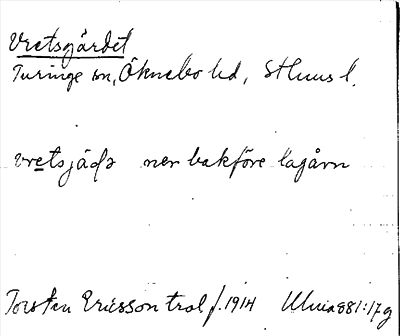 Vretsgärdet
Turinge sn, Öknebo hd, Sthlms l.
vretsjäḍǝ ner bakföre lagårn
Torsten Ericsson trol f. 1914 881:17g